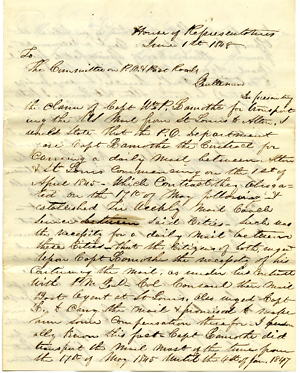 House of Representatives
June 1st 1848
To
The Committee on P.O. & Post Roads
Gentlemen
In presenting
the Claim of Capt Wm P. Lamothe for transport
ing the U.S. Mail from St Louis to Alton, I
would State that the P.O. Department
gave Capt Lamothe the Contract for
Carrying a daily Mail between Alton
& St Louis Commencing on the 1st of
April 1845 - Which Contract they abroga
ted on the 17th of May following &
established the Weekly Mail
between said Cities - which was
the necessity for a daily Mail between
these Cities - that the Citizens of both, urged
upon Capt Lamothe the necessity of his
Continuing the Mail, as under his Contract
with P.M. Genl. Col the then Mail
Agent at St Louis, also urged Capt
L. to Carry the Mail & promised to make
him some Compensation therefor. I person
ally know this fact - Capt Lamothe did
transport the Mail Most of the time from
the 17th of May 1845 Until the 4th of Jan 1847